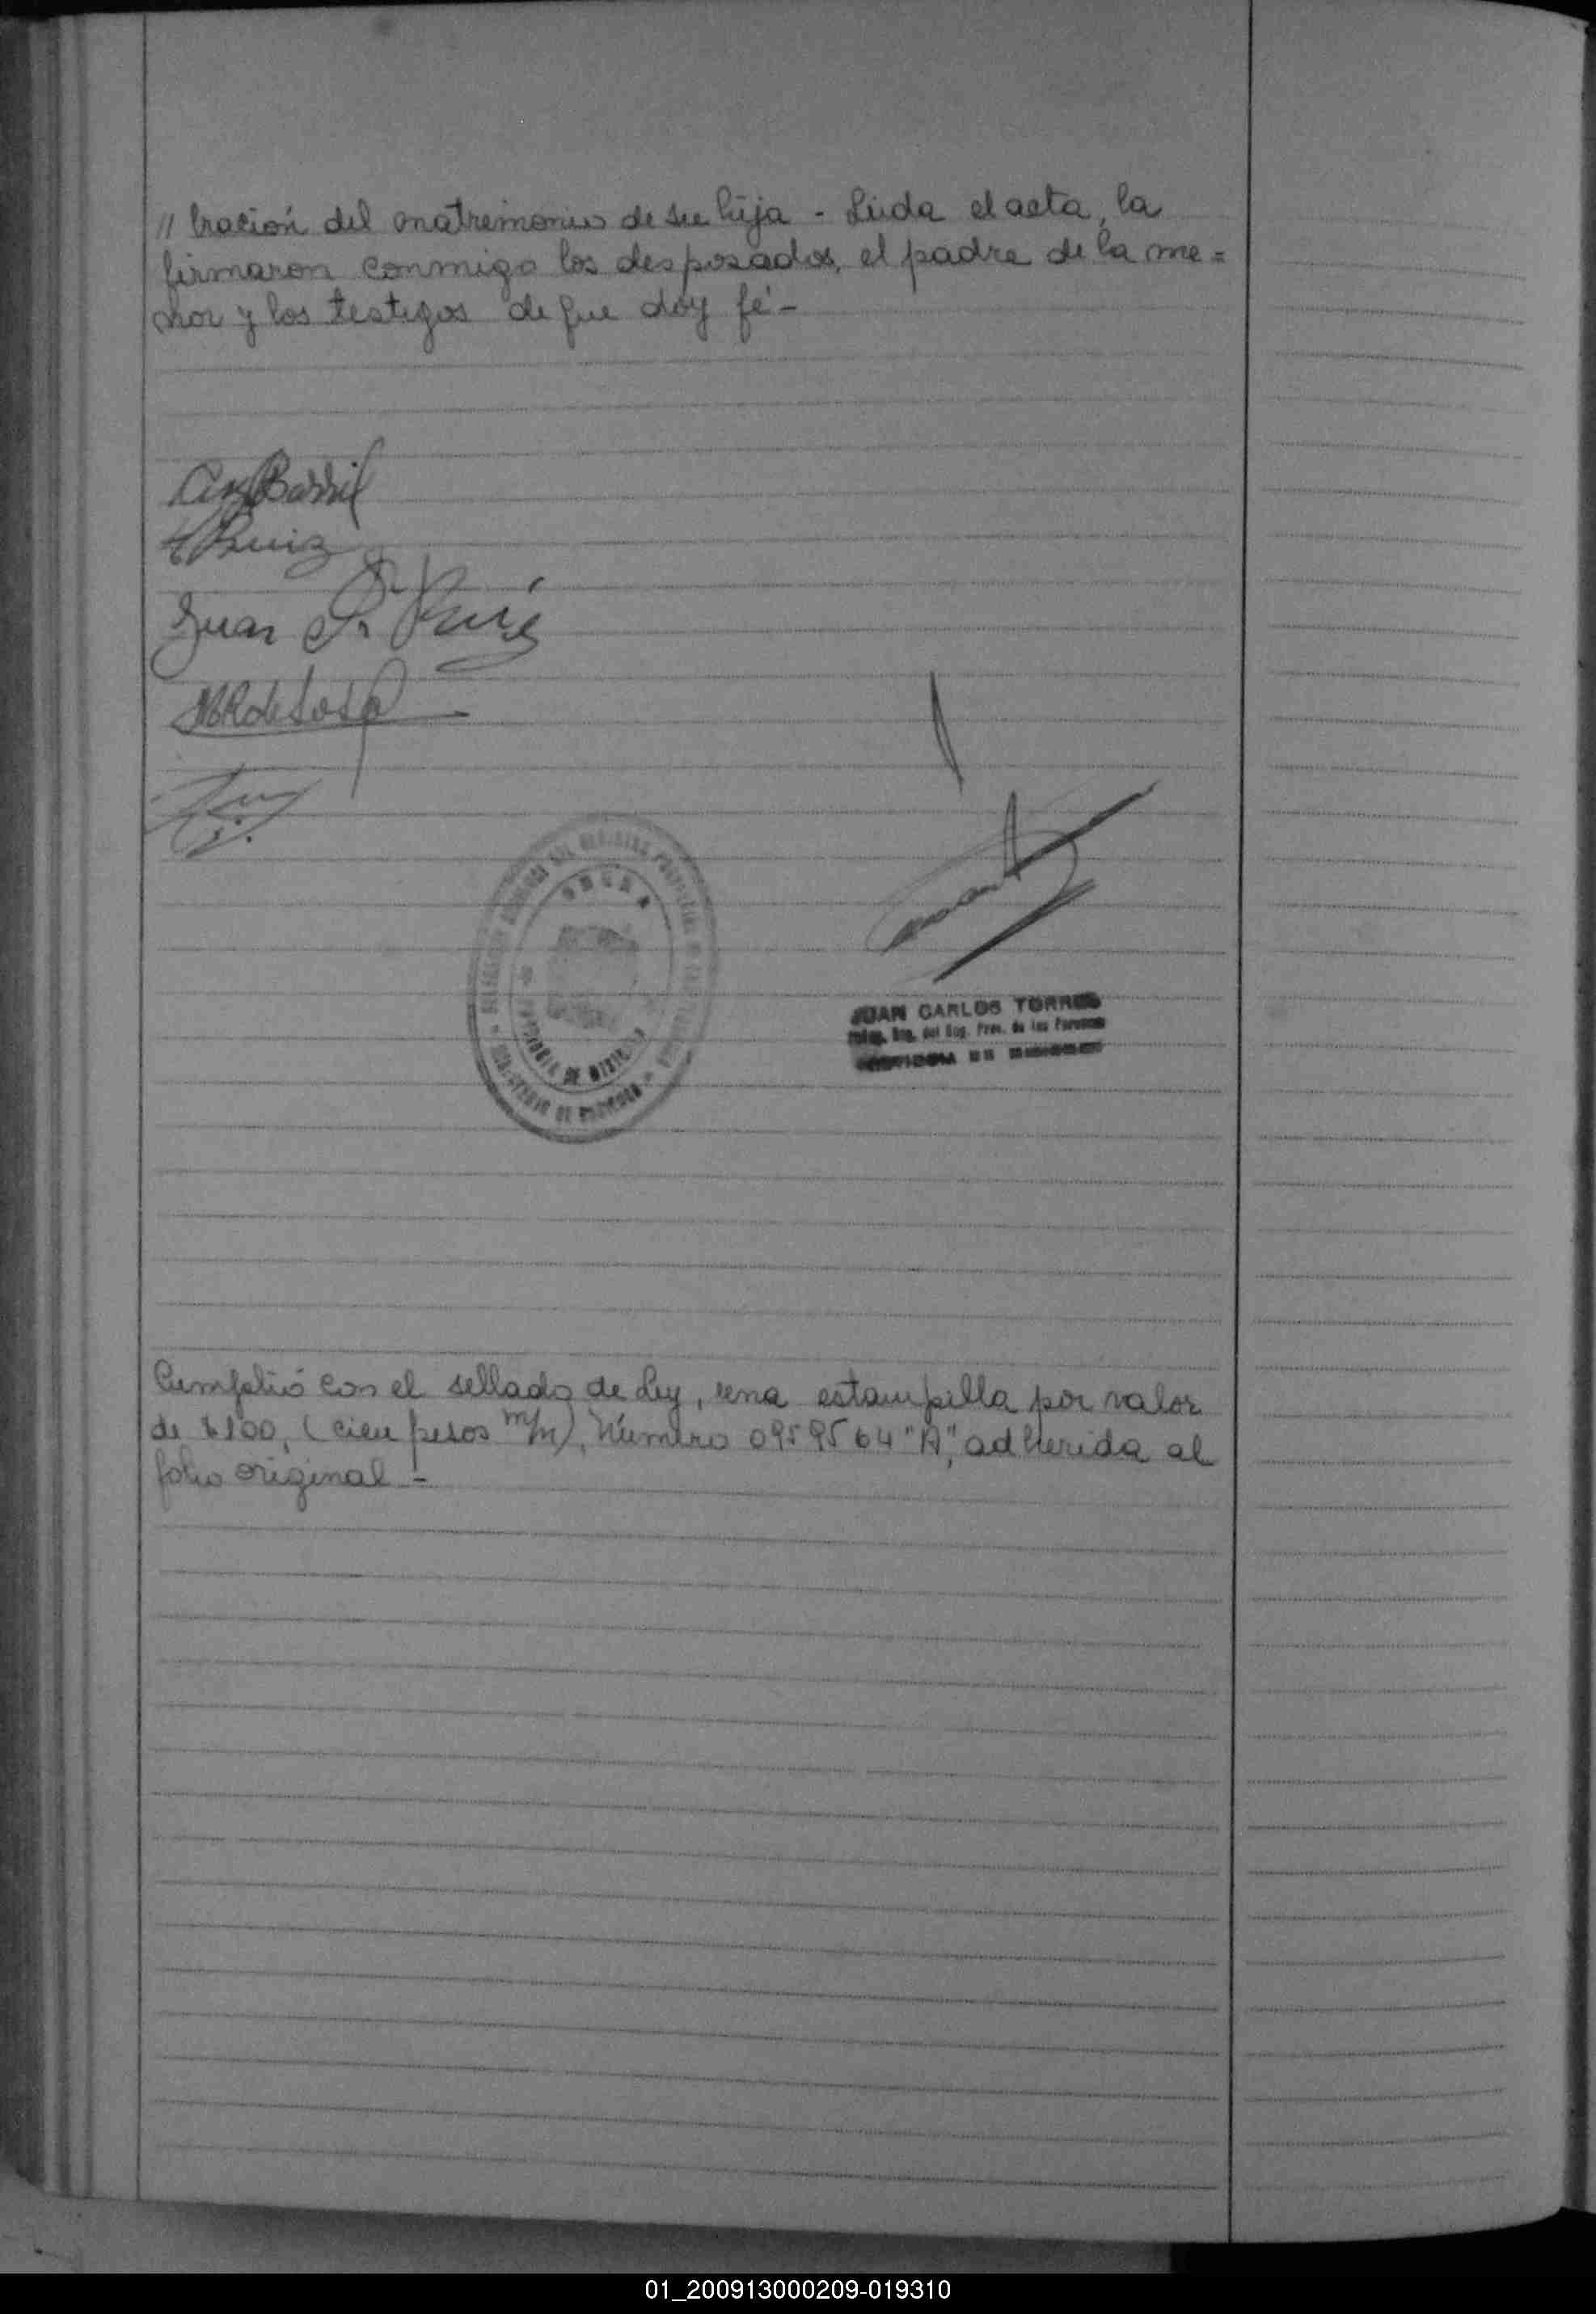 // bración del matrimonio de su hija - Leida el acta, la
firmaron conmigo los desposados, el padre de la me =
nor y los testigos de que doy fé -
Ruiz
Juan
JUAN CARLOS TORRES
Cumplió con el sellado de Ley, una estampilla por valor
de $ 100, (cien pesos m/n), Número 0959564 "A", adherida al
folio original -
01_200913000209-019310